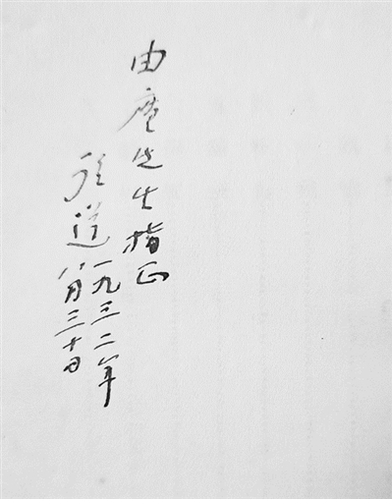 由廑先生指正
望道 一九三二年
八月三十日